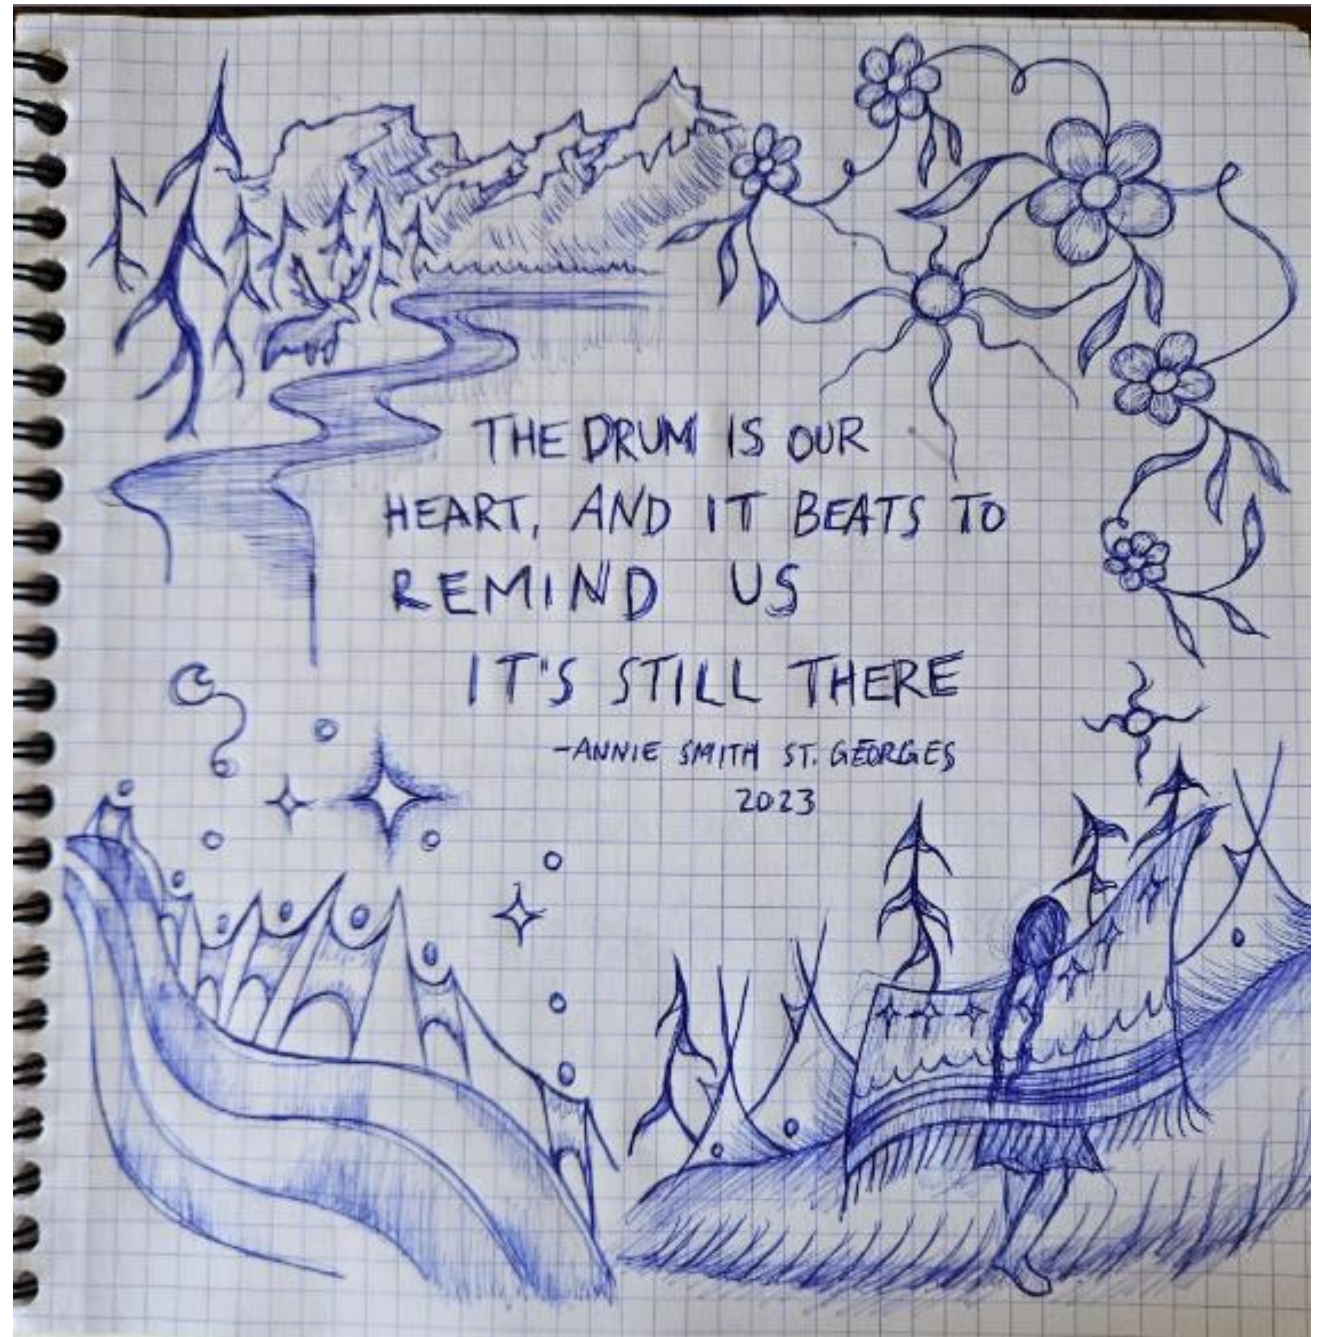 THE DRUM IS OUR
HEART, AND IT BEATS TO
REMIND US
IT'S STILL THERE
-ANNIE SMITH ST. GEORGES
2023